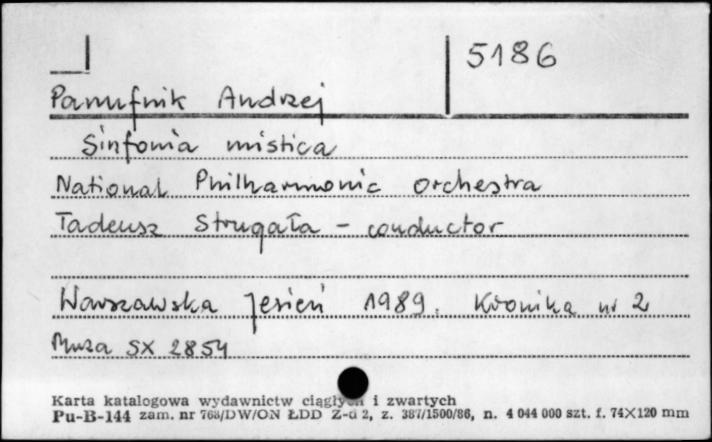 5186
Panufnik Andrzej
Sinfonia mistica
National Philharmonic orchestra
Tadeusz Strugała - conductor
Warszawska Jesień 1989. Kronika nr 2
Muza SX 2854
Karta katalogowa wydawnictw ciągłych i zwartych
Pu-B-144 zam. nr 768/DW/ON ŁDD Z-d 2, z. 387/1500/86, n. 4 044 000 szt. f. 74×120 mm